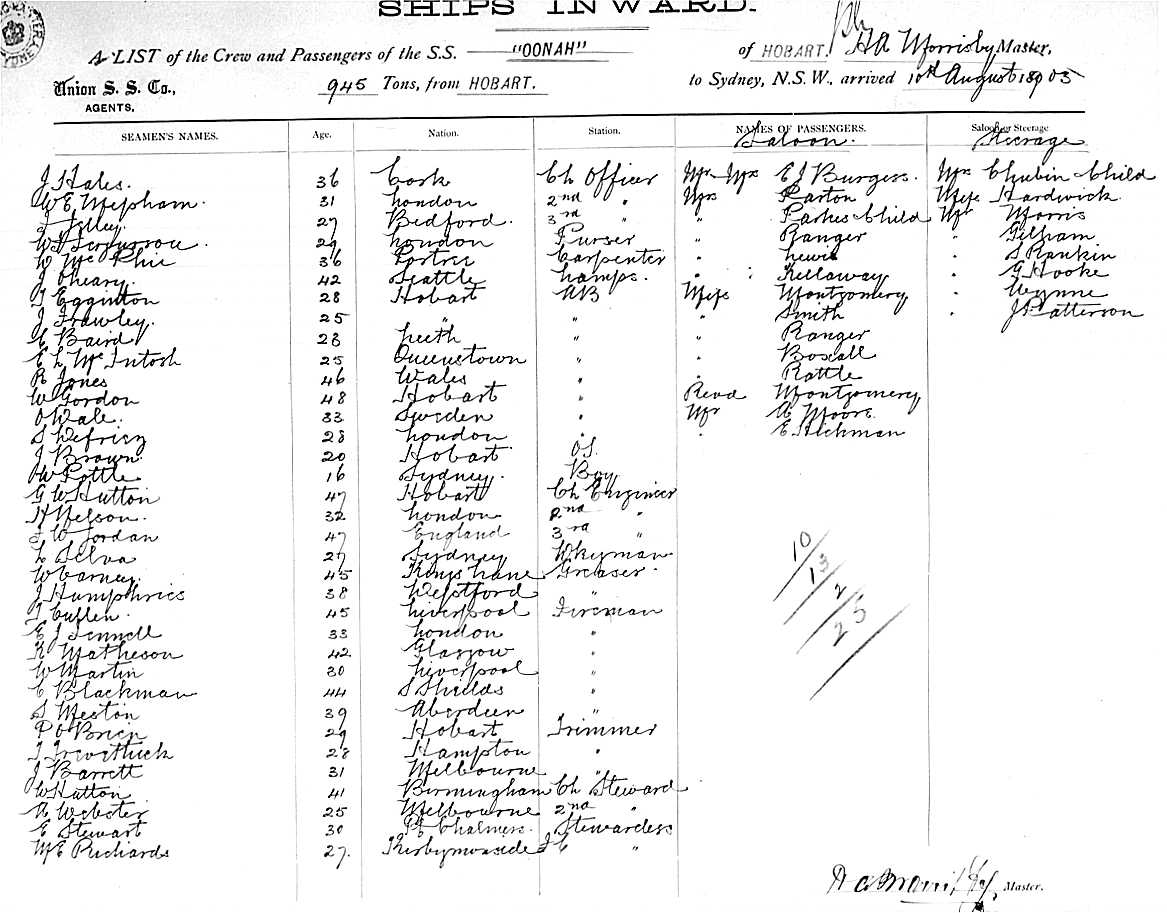 SHIPS INWARD.
A LIST of the Crew and Passengers of the S.S. "OONAH" of HOBART. HA Morrisby Master,
Union S. S. Co., 945 Tons, from HOBART. to Sydney, N.S.W., arrived 10th August 1903
AGENTS.
SEAMEN'S NAMES. Age. Nation. Station. NAMES OF PASSENGERS. Saloon or Steerage
Saloon. Steerage
J Hales. 36 Cork Ch Officer Mr Mrs E J Burgess. Mrs Chubin Child
W E Mepham. 31 London 2nd " Mrs Parton Miss Hardwick
J Jilley. 27 Bedford. 3rd " " Parkes Child Mr Morris
W Fergusson. 29 London Purser " Ranger " Gillham
W Mc Phie 36 Portree Carpenter " Lewis " S Rankin
J Cheary 42 Seattle Lamps. " Kellaway " G Hooke
T Egginton 28 Hobart AB Misses Montgomery " Wynne
J Frawley. 25 " " " Smith " J Patterson
C Baird 28 Leith " " Ranger
E L Mc Intosh 25 Queenstown " " Boxall
R Jones 46 Wales " " Rattle
W Gordon 48 Hobart " Revd Montgomery
O Wale. 33 Sweden " Mr A Moore
S 28 London " " E Hickman
J Brown. 20 Hobart OS.
W Pottle 16 Sydney. Boy
G W Hutton 47 Hobart Ch Engineer
H Nelson. 32 London 2nd "
J W Jordan 47 England 3rd "
L Silva 27 Sydney Wkyman
W Carney. 45 Kings Lane Greaser
J Humphries 38 Westford "
T Cullen 45 Liverpool Fireman
E J Fennell 33 London "
K Matheson 42 Glasgow "
W Martin 30 Liverpool "
C Blackman 44 S Shields "
S Meston 39 Aberdeen "
P O Brien 29 Hobart Trimmer
J 28 Hampton "
J Barrett 31 Melbourne "
W Hutton 41 Birmingham Ch Steward
A Webster 25 Melbourne 2nd "
E Stewart 30 Pt Chalmers. Stewardess
M E Richards 27. "
10
13
2
25
Master.